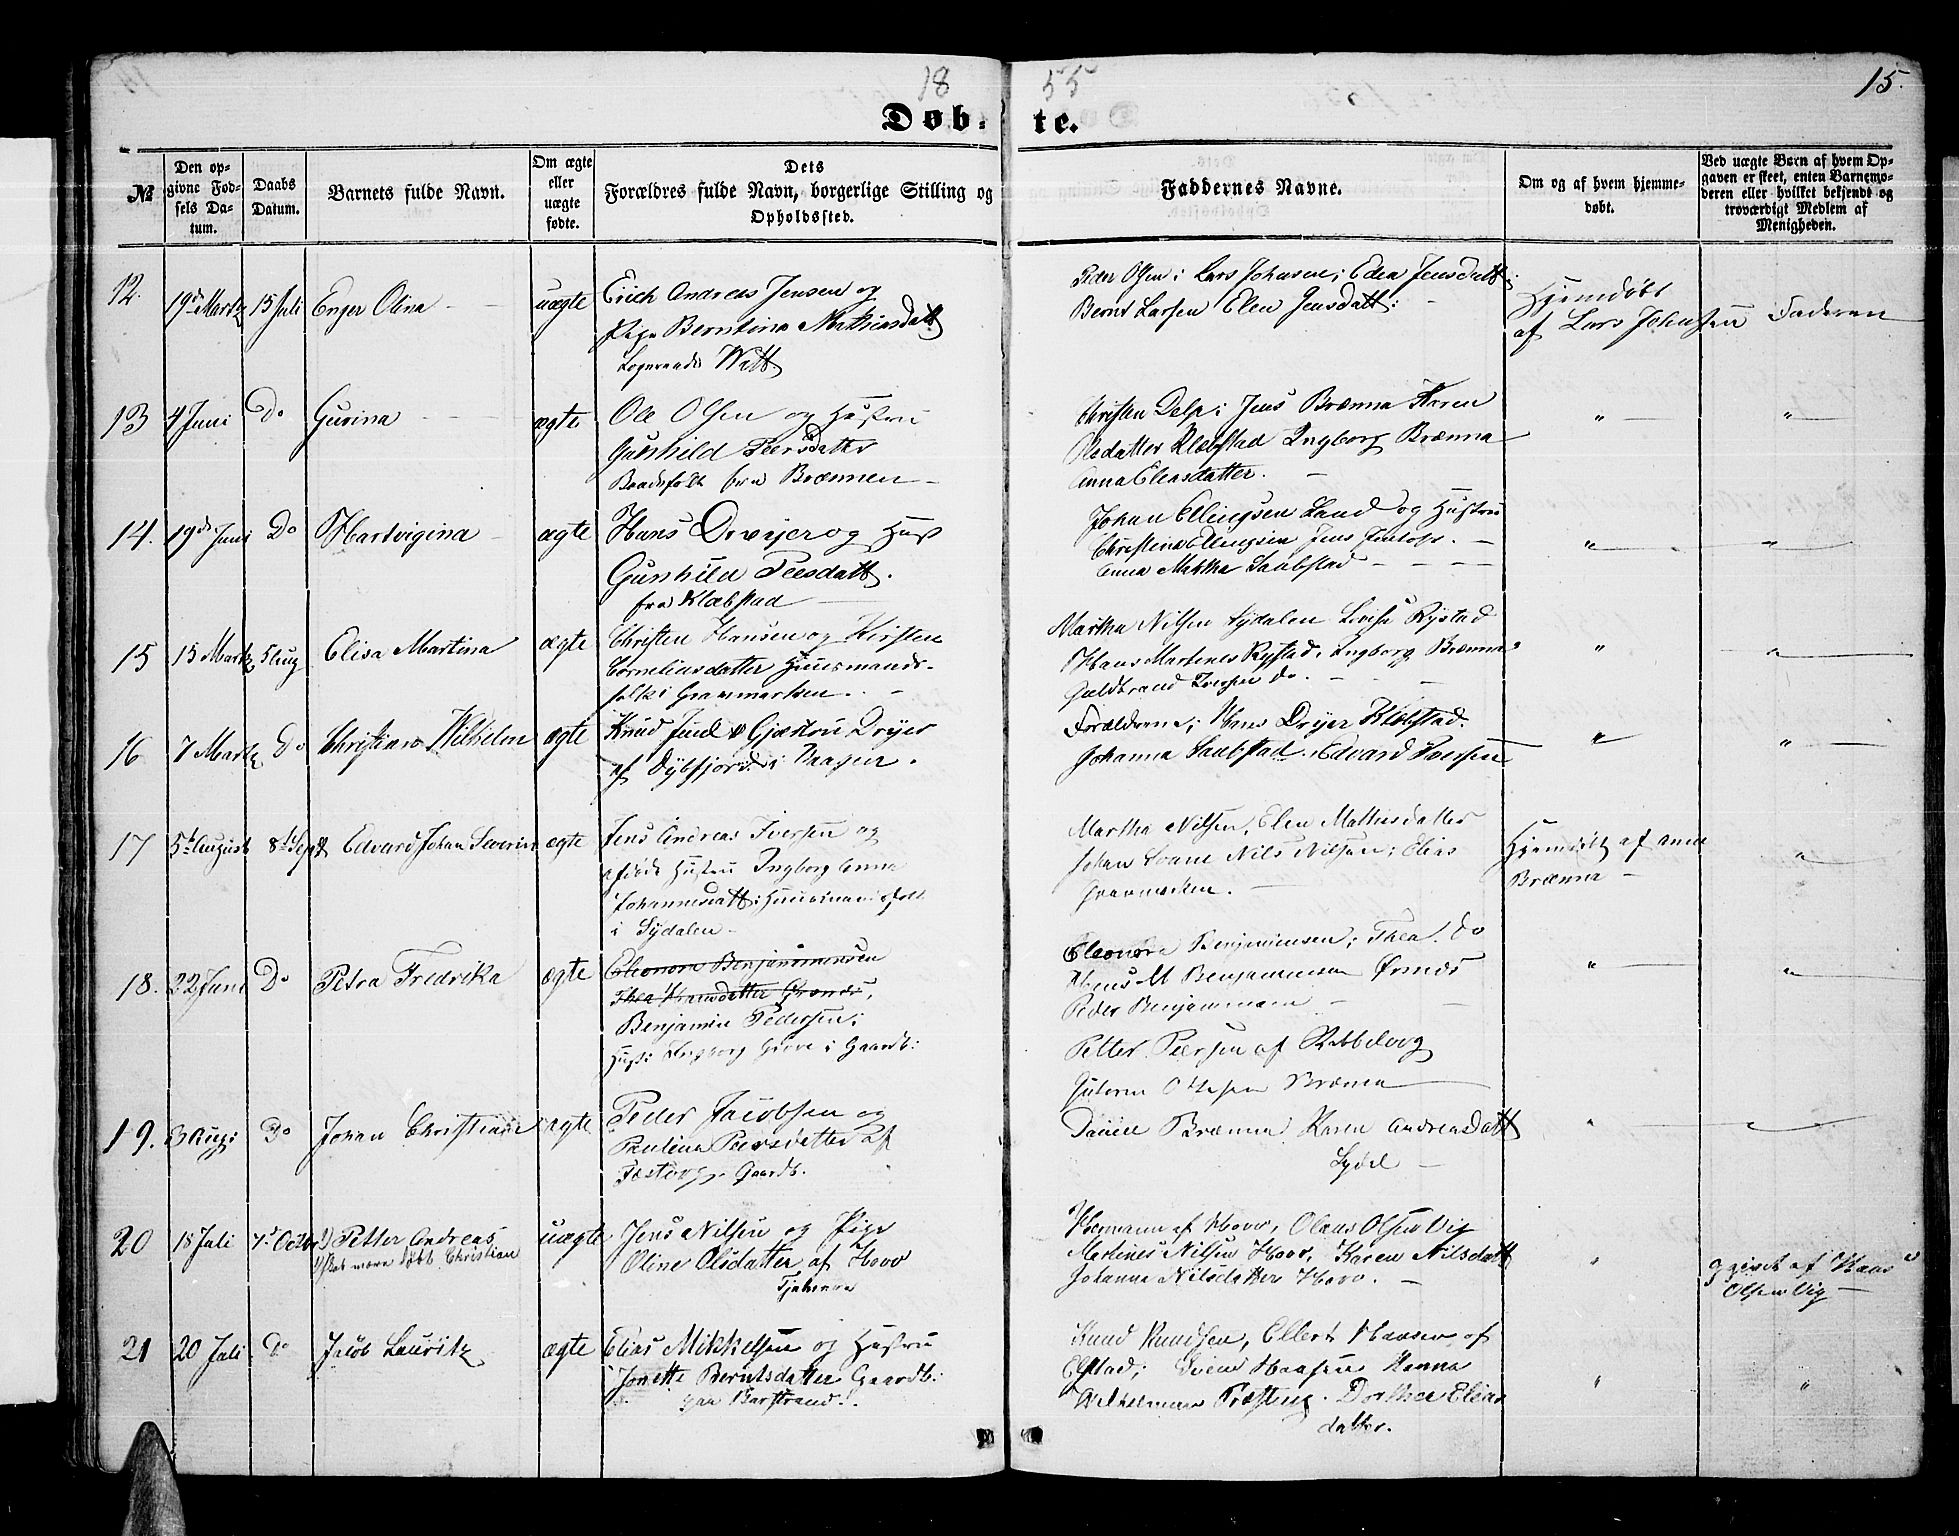 18 55
15.
Døb- te.
№
Den opgivne Fødsels Datum.
Daabs Datum.
Barnets fulde Navn.
Om ægte eller uægte fødte.
Dets Forældres fulde Navn, borgerlige Stilling og Opholdssted.
Faddernes Navne.
Om og af hvem hjemmedøbt.
Ved uægte Børn af hvem Opgaven er skeet, enten Barnemoderen eller hvilket bekjendt og troværdigt Medlem af Menigheden.
12. 19de Martz 15 Juli Enger Olina uægte
Erich Andreas Jensen og
Pige Berntina Mathiasdatt
Logerende Watt
Peder Olsen; Lars Johnsen; Eden Jensdatt;
Bernt Larsen Elen Jensdatt:
Hjemdøbt
af Lars Johnsen
Faderen
13 4 Juni Do Gurina ægte
Ole Olsen og Hustru
Gunhild Peersdatter
Baadsfolk fra Brænnen
Christen Delp; Jens Brænna Karen
Olsdatter Klæbstad Ingborg Brænna
Anna Eleasdatter.
" "
14. 19de Juni Do Hartvigina ægte
Hans Dreyer og Hust
Gunhild Peesdatt.
fra Klæbstad
Johan Ellingsen Sand og Hustru
Christina Ellingsen Jens
Anna Martha Saubstad
" "
15 15 Martz 5 Aug Elisa Martina ægte
Christen Hansen og Kirsten
Corneliasdatter Huusmands-
folk i Gravmarken.
Martha Nilsen Sydalen Lovise Rystad
Hans Martenes Rystad, Ingborg Brænna
Guldbrand Iversen do.
" "
16 7 Martz do Christian Wilhelm ægte
Knud Juul & Gjærtru Dryer
af Dybfjord i Vaagen.
Forældrene; Hans Dryer Klæbstad.
Johanna Saubstad. Edvard Iversen
" "
17 5te August 8de Sept Edvard Johan Severin ægte
Jens Andreas Iversen og
Hustru Ingborg Anna
Johannesdatt: Huusmandsfolk
i Sydalen
Martha Nilsen, Elen Mathisdatter
Johan Nils Nilsen; Elias
Gravmarken.
Hjemdøbt af
Brænna
"
18. 22 Juni Do Petra Fredrika ægte
Eleonora Benjaminsen
Thea Hansdatter Ørsnes,
Benjamin Pedersen;
Hust: Ingborg i Gaardb:
Eleonora Benjaminsen; Thea. do
M Benjaminsen Ørsnes
Peder Benjaminsen
Petter Peersen af
Ottesen Brænna
" "
19. 3 Aug: Do Johan Christian ægte
Peder Jacobsen og
Paulina Peersdatter af
Festvog. Gaardb.
Daniel Brænna Karen Andreasdatt
Sydal
" "
20 18 Juli 7d Octbr 1) Petter Andreas
1) skal være døbt Christian uægte
Jens Nilsen og Pige
Oline Olsdatter af Hovo
Tjenere
Hermann af Hovo, Olaus Olsen Vig
Martines Nilsen Hovo, Karen Nilsdatt
Johanna Nilsdatter Hovo.
"
givet af Hans
Olsen Vig
21 20 Juli Do Jacob Lauritz ægte
Elias Mikkelsen og Hustru
Jonette Berntsdatter Gaardb:
paa Barstrand.
Knud Knudsen, Ellert Hansen af
Elstad; Hansen Hanna
Præsteng. Dorthea Elias
datter.
" "